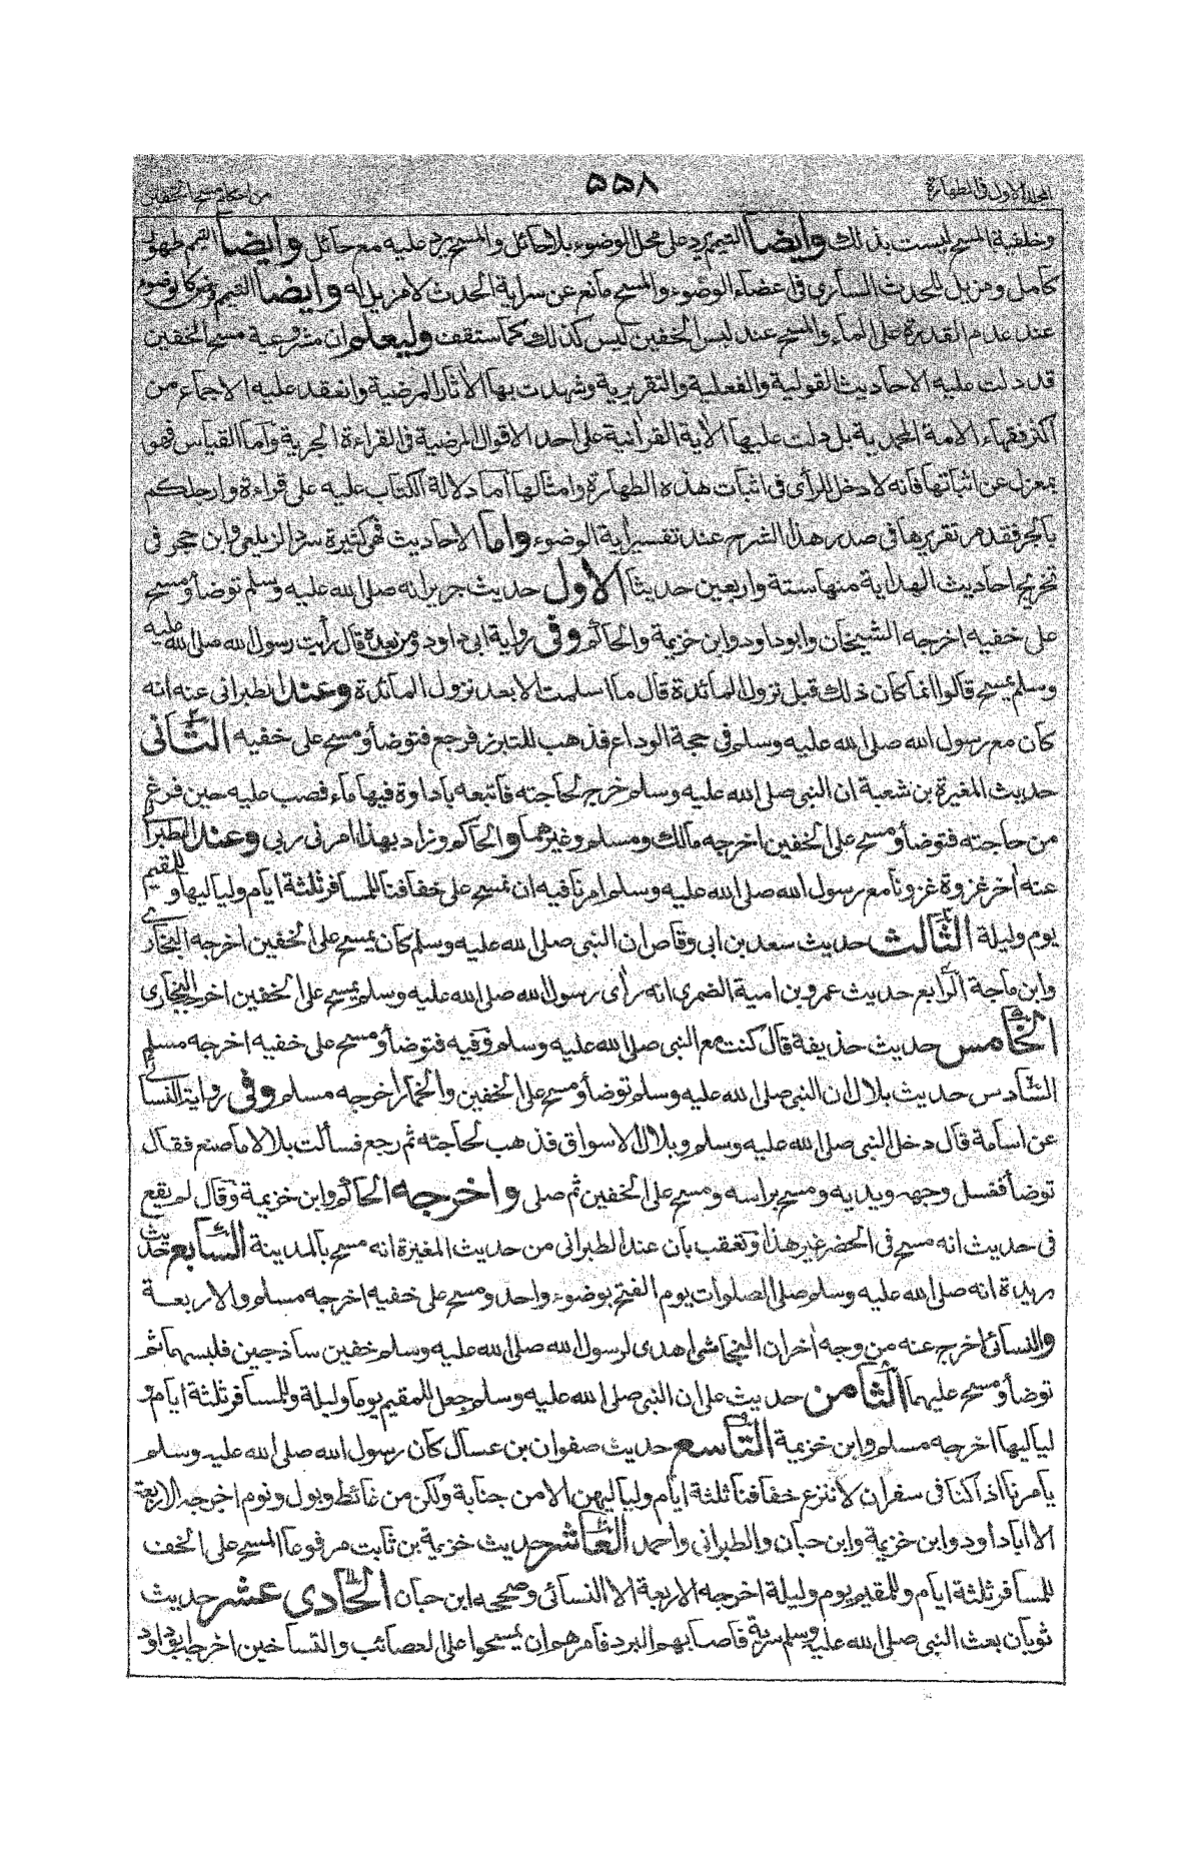 المجلد الاول فى الطهارة ٥٥٨ من احكام مسح الخفين
وخلفية المسح ليست بذلك وايضا التيمم يرد على محل الوضوء بلا حائل والمسح يرد عليه مع حائل وايضا التيمم طهور
كامل ومزيل للحدث السارى فى اعضاء الوضوء والمسح مانع عن سراية الحدث لا مزيل له وايضا التيمم
عند عدم القدرة على الماء والمسح عند لبس الخفين ليس كذلك كما ستقف وليعلم ان مشروعية مسح الخفين
قد دلت عليه الاحاديث القولية والفعلية والتقريرية وشهدت بها الآثار المرضية وانعقد عليه الاجماع من
اكثر فقهاء الامة المحمدية بل دلت عليها الآية القرآنية على احد الاقوال المرضية فى القراءة الجرية واما القياس فهو
بمعزل عن اثباتها فانه لا دخل للرأى فى اثبات هذه الطهارة وامثالها اما دلالة الكتاب عليه على قراءة وارجلكم
بالجر فقد مر تقريرها فى صدر هذا الشرح عند تفسير اية الوضوء واما الاحاديث فهى كثيرة سرد الزيلعى وابن حجر فى
تخريج احاديث الهداية منها ستة واربعين حديثا الاول حديث جرير انه صلى الله عليه وسلم توضأ ومسح
على خفيه اخرجه الشيخان وابوداود وابن خزيمة والحاكم وفى رواية ابى داود ومن بعده قال رأيت رسول الله صلى الله عليه
وسلم يمسح قالوا انما كان ذلك قبل نزول المائدة قال ما اسلمت الا بعد نزول المائدة وعند الطبرانى عنه انه
كان مع رسول الله صلى الله عليه وسلم فى حجة الوداع فذهب للتبرز فرجع فتوضأ ومسح على خفيه الثانى
حديث المغيرة بن شعبة ان النبى صلى الله عليه وسلم خرج لحاجته فاتبعه باداوة فيها ماء فصب عليه حين فرغ
من حاجته فتوضأ ومسح على الخفين اخرجه مالك ومسلم وغيرهما والحاكم وزاد بهذا امرنى ربى وعند الطبرانى
عنه آخر غزوة غزونا مع رسول الله صلى الله عليه وسلم امرنا فيه ان نمسح على خفافنا للمسافر ثلثة ايام ولياليها وللمقيم
يوم وليلة الثالث حديث سعد بن ابى وقاص ان النبى صلى الله عليه وسلم كان يمسح على الخفين اخرجه البخارى
وابن ماجة الرابع حديث عمرو بن امية الضمرى انه رأى رسول الله صلى الله عليه وسلم يمسح على الخفين اخرجه البخارى
الخامس حديث حذيفة قال كنت مع النبى صلى الله عليه وسلم وفيه فتوضأ ومسح على خفيه اخرجه مسلم
السادس حديث بلال ان النبى صلى الله عليه وسلم توضأ ومسح على الخفين والخمار اخرجه مسلم وفى رواية النسائى
عن اسامة قال دخل النبى صلى الله عليه وسلم وبلال الاسواق فذهب لحاجته ثم رجع فسألت بلالا ما صنع فقال
توضأ فغسل وجهه ويديه ومسح برأسه ومسح على الخفين ثم صلى واخرجه الحاكم وابن خزيمة وقال لم يقع
فى حديث انه مسح فى الحضر غير هذا وتعقب بان عند الطبرانى من حديث المغيرة انه مسح بالمدينة السابع حديث
بريدة انه صلى الله عليه وسلم صلى الصلوات يوم الفتح بوضوء واحد ومسح على خفيه اخرجه مسلم والاربعة
والنسائى اخرج عنه من وجه اخر ان النجاشى اهدى لرسول الله صلى الله عليه وسلم خفين ساذجين فلبسهما ثم
توضأ ومسح عليهما الثامن حديث على ان النبى صلى الله عليه وسلم جعل للمقيم يوما وليلة وللمسافر ثلثة ايام و
لياليها اخرجه مسلم وابن خزيمة التاسع حديث صفوان بن عسال كان رسول الله صلى الله عليه وسلم
يأمرنا اذا كنا فى سفر ان لا ننزع خفافنا ثلثة ايام ولياليهن الا من جنابة ولكن من غائط وبول ونوم اخرجه الاربعة
الا ابا داود وابن خزيمة وابن حبان والطبرانى واحمد العاشر حديث خزيمة بن ثابت مرفوعا المسح على الخف
للمسافر ثلثة ايام وللمقيم يوم وليلة اخرجه الاربعة الا النسائى وصححه ابن حبان الحادى عشر حديث
ثوبان بعث النبى صلى الله عليه وسلم سرية فاصابهم البرد فامرهم ان يمسحوا على العصائب والتساخين اخرجه ابوداود